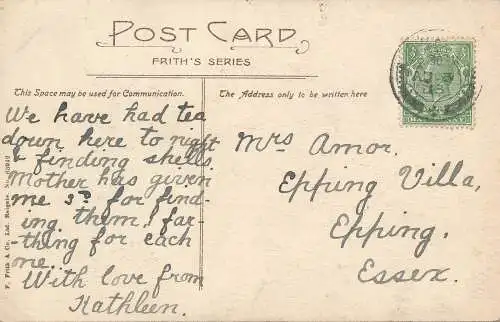 POST CARD
FRITH'S SERIES
This Space may be used for Communication.
The Address only to be written here
We have had tea
down here to night
& finding shells.
Mother has given
me 3D for find-
ing them, far-
-thing for each
one.
With love from
Kathleen.
Mrs Amor.
Epping Villa,
Epping.
Essex.
F. Frith & Co., Ltd. Reigate. No.